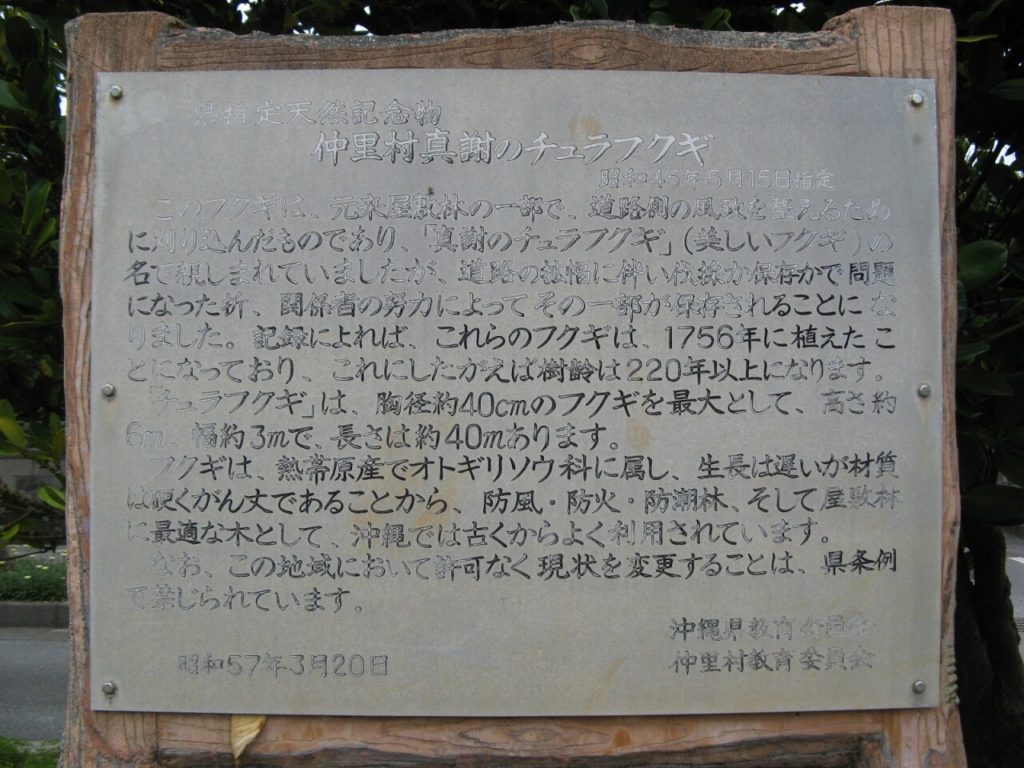 県指定天然記念物
仲里村真謝のチュラフクギ
昭和45年5月15日指定
このフクギは、元来屋敷林の一部で、道路側の風致を整えるため
に刈り込んだものであり、「真謝のチュラフクギ」(美しいフクギ)の
名で親しまれていましたが、道路の拡幅に伴い伐採か保存かで問題
になった折、関係者の努力によってその一部が保存されることにな
りました。記録によれば、これらのフクギは、1756年に植えたこ
とになっており、これにしたがえば樹齢は220年以上になります。
「チュラフクギ」は、胸径約40cmのフクギを最大として、高さ約
6m、幅約3mで、長さは約40mあります。
フクギは、熱帯原産でオトギリソウ科に属し、生長は遅いが材質
は硬くがん丈であることから、防風・防火・防潮林、そして屋敷林
に最適な木として、沖縄では古くからよく利用されています。
なお、この地域において許可なく現状を変更することは、県条例
で禁じられています。
沖縄県教育委員会
昭和57年3月20日
仲里村教育委員会